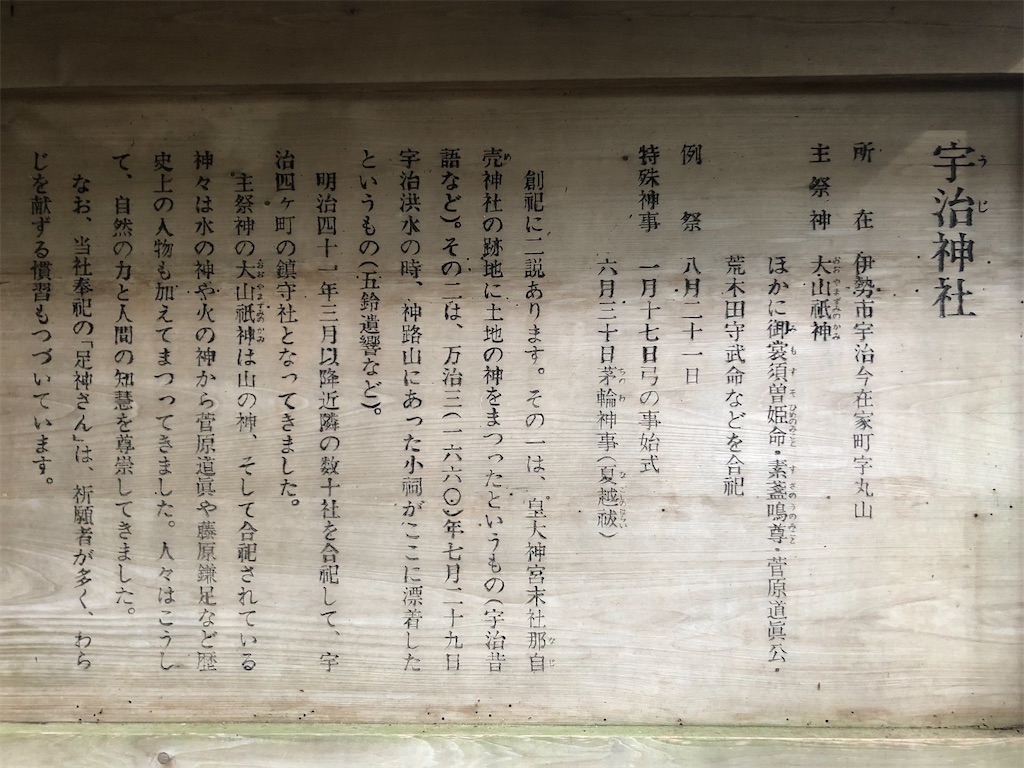 宇治神社
所在　伊勢市宇治今在家町字丸山
主祭神　大山祇神
ほかに御裳須曽姫命・素盞嗚尊・菅原道眞公・
荒木田守武命などを合祀
例祭　八月二十一日
特殊神事　一月十七日弓の事始式
六月三十日茅輪神事（夏越祓）
創祀に二説あります。その一は、皇大神宮末社那自
売神社の跡地に土地の神をまつったというもの（宇治昔
語など）。その二は、万治三（一六六〇）年七月二十九日
宇治洪水の時、神路山にあった小祠がここに漂着した
というもの（五鈴遺響など）。
明治四十一年三月以降近隣の数十社を合祀して、宇
治四ヶ町の鎮守社となってきました。
主祭神の大山祇神は山の神、そして合祀されている
神々は水の神や火の神から菅原道眞や藤原鎌足など歴
史上の人物も加えてまつってきました。人々はこうし
て、自然の力と人間の知慧を尊崇してきました。
なお、当社奉祀の「足神さん」は、祈願者が多く、わら
じを献ずる慣習もつづいています。